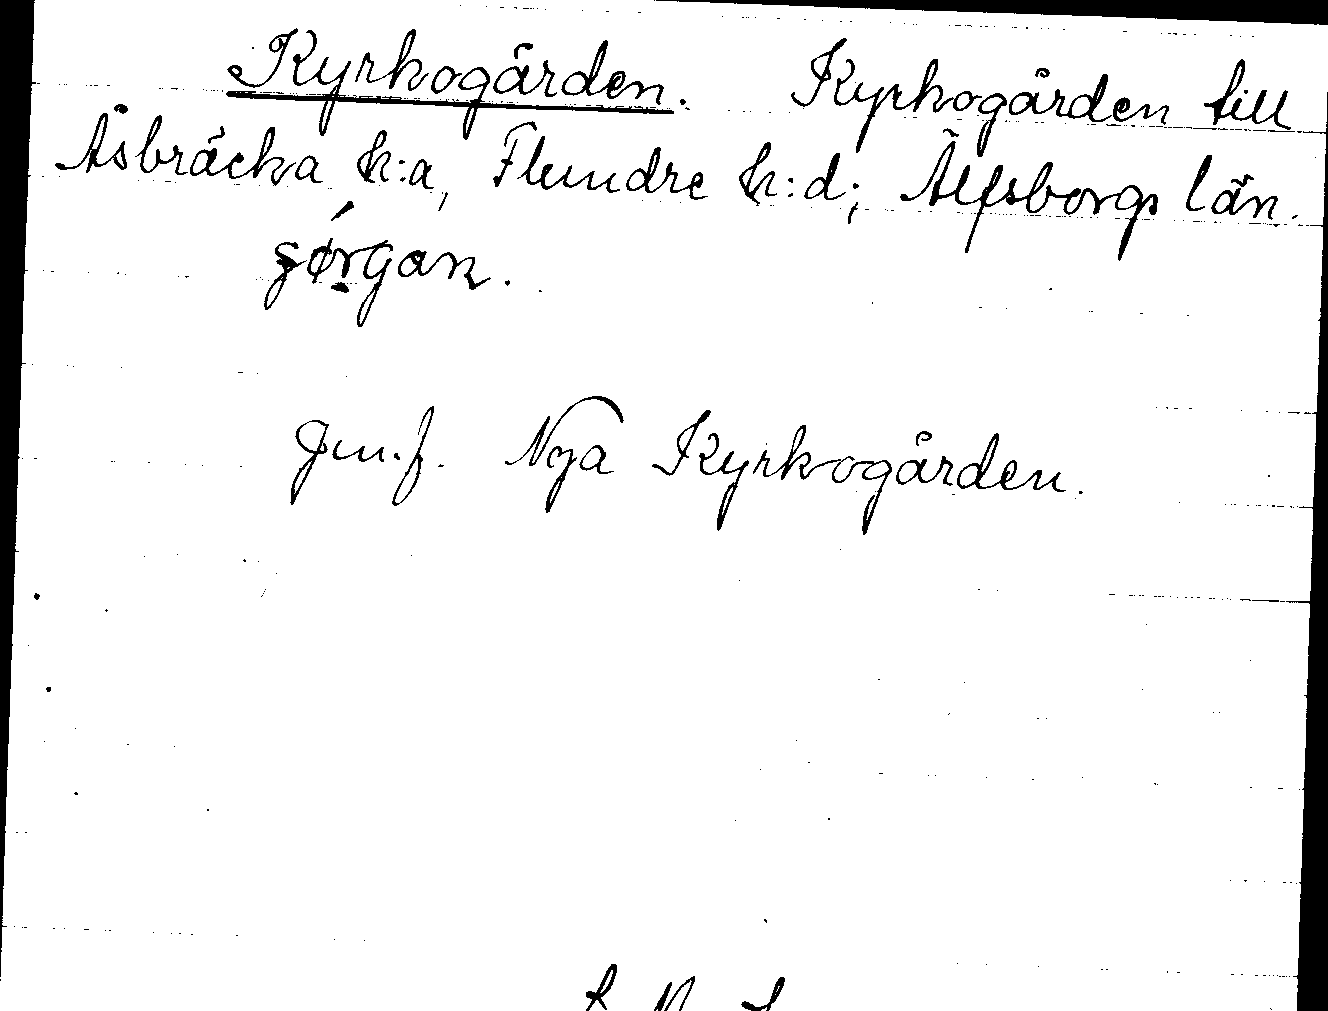 Kyrkogården. Kyrkogården till
Åsbräcka k:a, Flundre h:d; Älfsborgs län.
Jmf. Nya Kyrkogården.